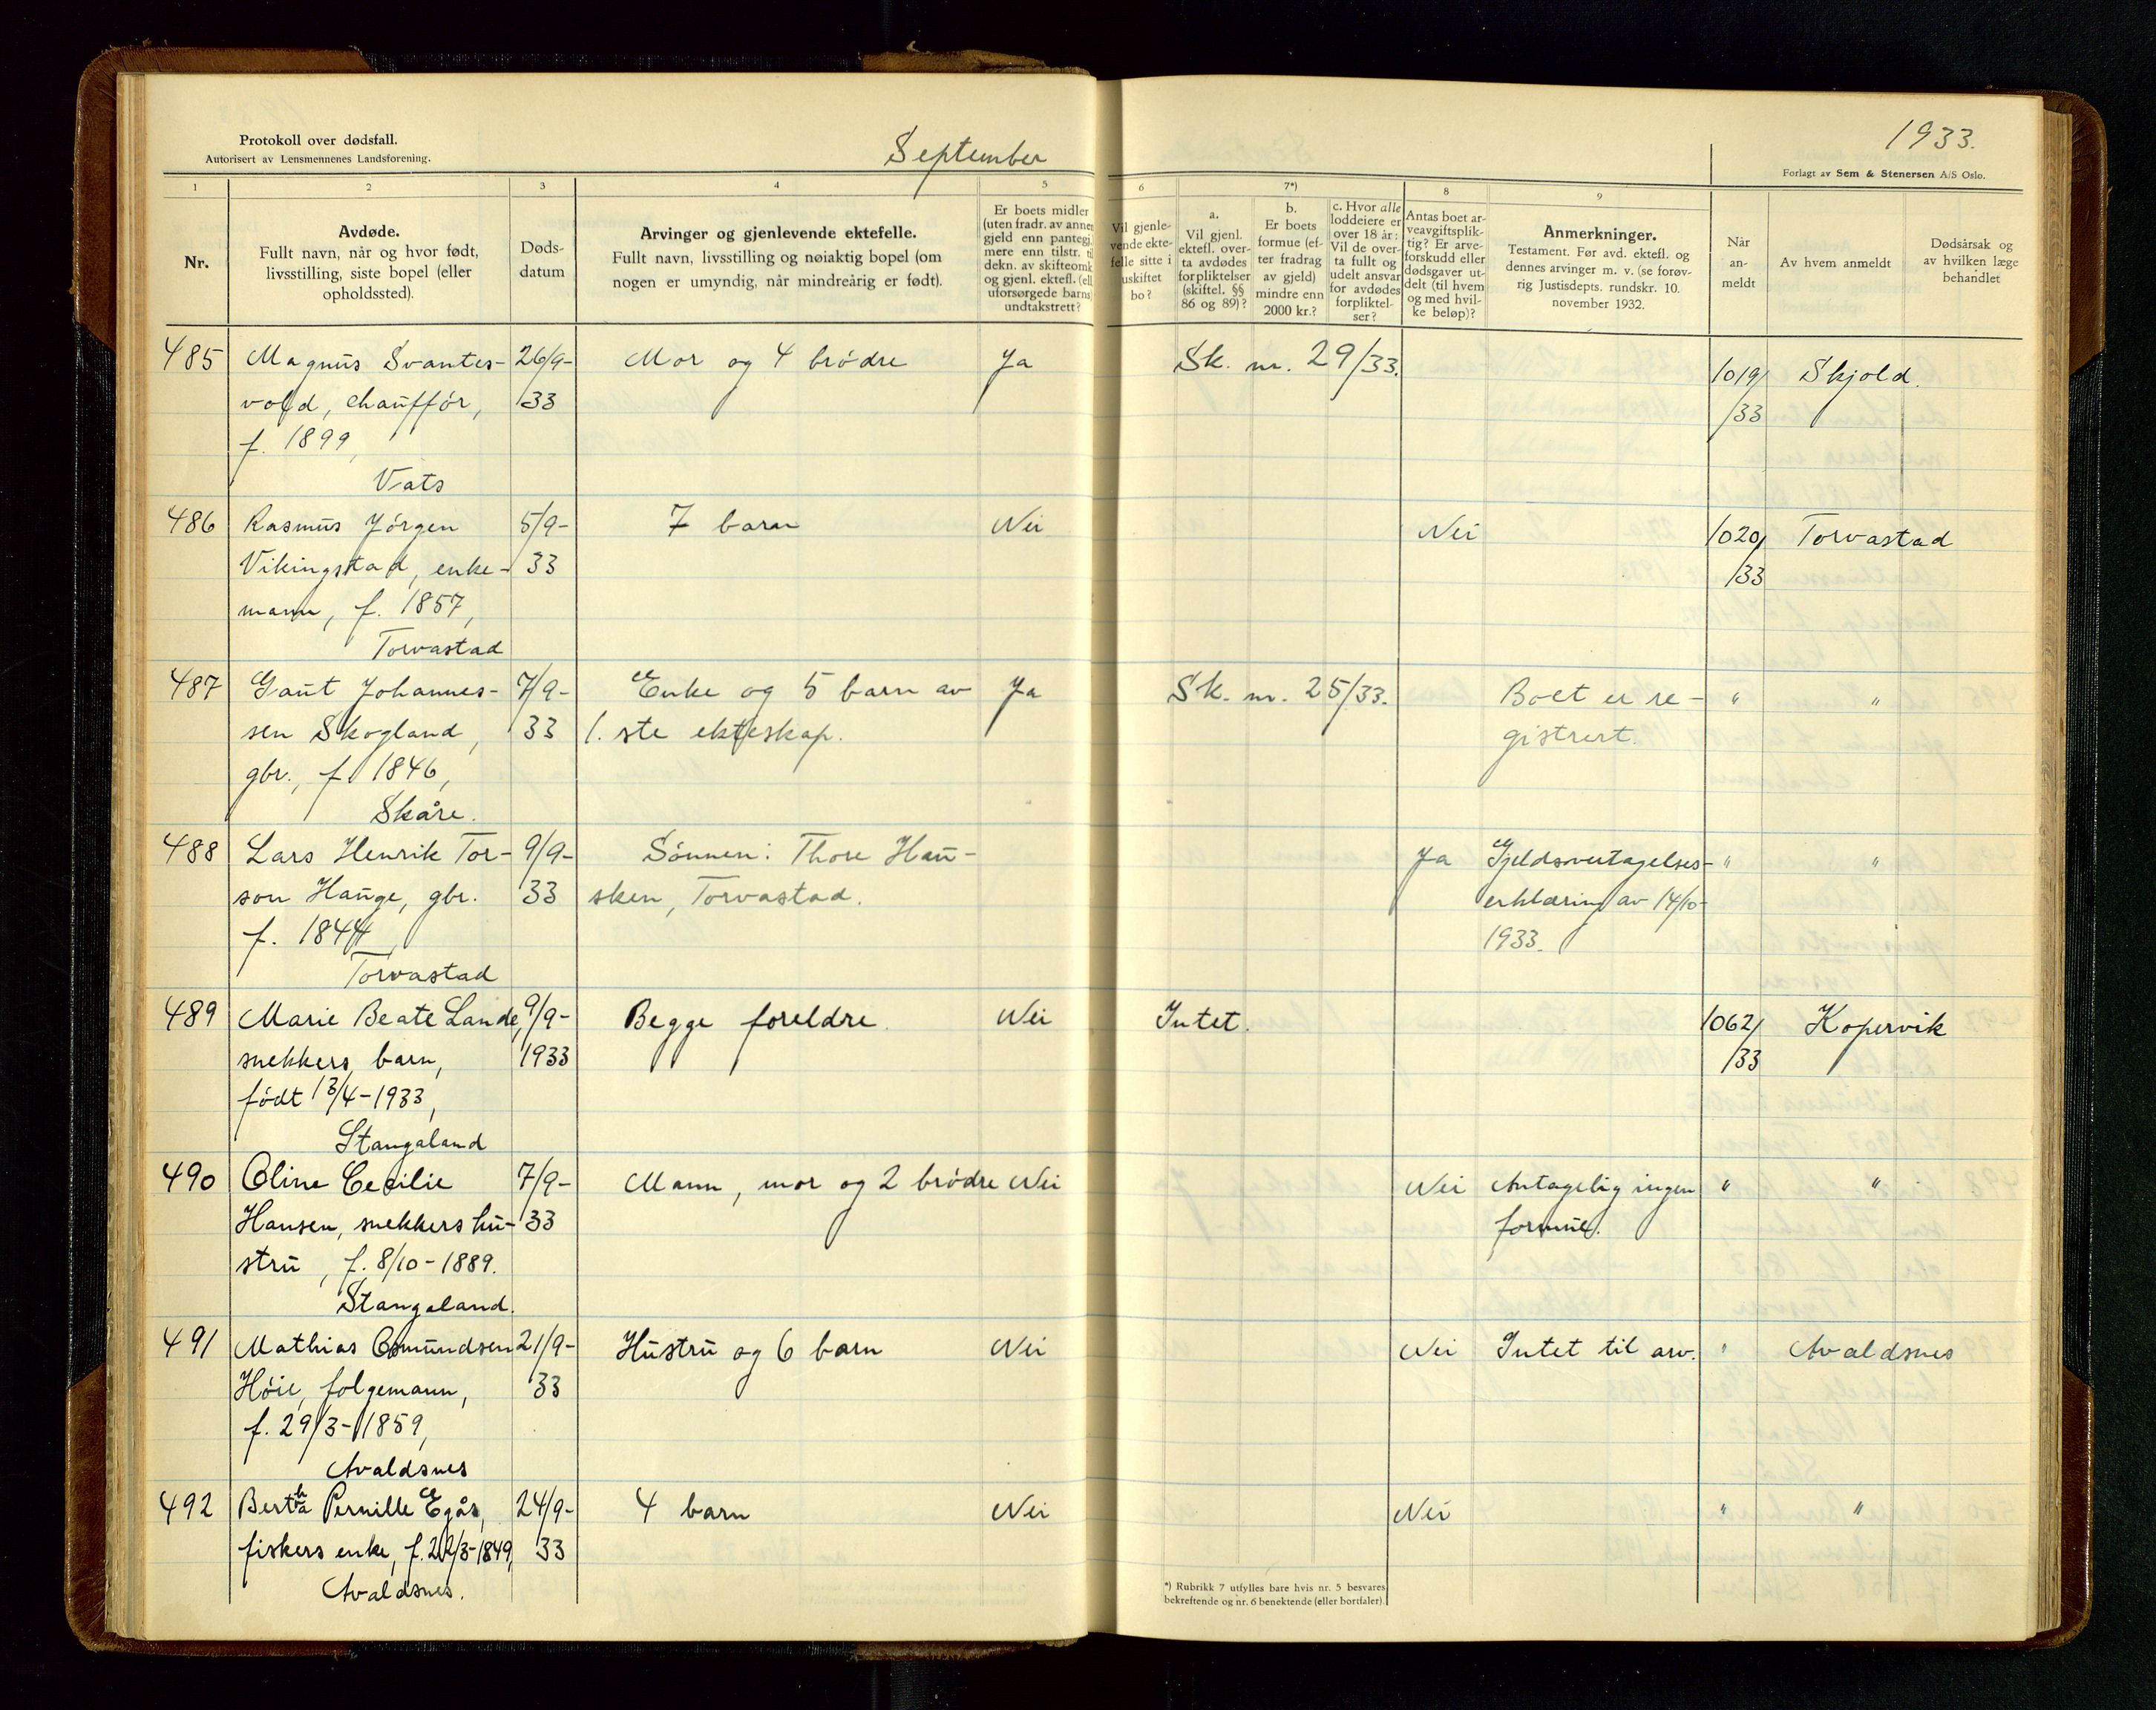 Protokoll over dødsfall.
Autorisert av Lensmennenes Landsforening.
September
1933.
Forlagt av Sem & Stenersen A/S Oslo.
1 2 3 4 5 6 7*) 8 9
Nr.
Avdøde.
Fullt navn, når og hvor født,
livsstilling, siste bopel (eller
opholdssted).
Døds-
datum
Arvinger og gjenlevende ektefelle.
Fullt navn, livsstilling og nøiaktig bopel (om
nogen er umyndig, når mindreårig er født).
Er boets midler
(uten fradr. av annen
gjeld enn pantegj.
mere enn tilstr. til
dekn. av skifteomk.
og gjenl. ektefl. (ell.
uforsørgede barns)
undtakstrett?
Vil gjenle-
vende ekte-
felle sitte i
uskiftet
bo?
a.
Vil gjenl.
ektefl. over-
ta avdødes
forpliktelser
(skiftel. §§
86 og 89)?
b.
Er boets
formue (ef-
ter fradrag
av gjeld)
mindre enn
2000 kr.?
c. Hvor alle
loddeiere er
over 18 år:
Vil de over-
ta fullt og
udelt ansvar
for avdødes
forpliktel-
ser?
Antas boet ar-
veavgiftsplik-
tig? Er arve-
forskudd eller
dødsgaver ut-
delt (til hvem
og med hvil-
ke beløp)?
Anmerkninger.
Testament. Før avd. ektefl. og
dennes arvinger m. v. (se forøv-
rig Justisdepts. rundskr. 10.
november 1932.
Når
an-
meldt
Av hvem anmeldt
Dødsårsak og
av hvilken læge
behandlet
485 Magnus Svantes- 26/9- Mor og 4 brødre Ja Sk. nr. 29/33. 1019/ Skjold.
vold, chauffør, 33 /33
f. 1899,
Vats
486 Rasmus Jørgen 5/9- 7 barn Nei Nei 1020/ Torvastad
Vikingstad, enke- 33 /33
mann, f. 1857,
Torvastad
487 Gaut Johannes- 7/9- Enke og 5 barn av Ja Sk. nr. 25/33. Boet er re- " "
sen Skogland, 33 1. ste ekteskap. gistrert.
gbr., f. 1846,
Skåre.
488 Lars Henrik Tor- 9/9- Sønnen: Thore Hau- Ja Gjeldsovertagelses- " "
son Hauge, gbr. 33 sken, Torvastad. erklæring av 14/10-
f. 1844, 1933.
Torvastad
489 Marie Beate Lande, 9/9- Begge foreldre. Nei Intet. 1062/ Kopervik
snekkers barn, 1933 /33
født 13/4-1933,
Stangaland
490 Oline Cecilie 7/9- Mann, mor og 2 brødre Nei Nei Antagelig ingen " "
Hansen, snekkers hu- 33 formue.
stru, f. 8/10-1889.
Stangaland.
491 Mathias Osmundsen 21/9- Hustru og 6 barn Nei Nei Intet til arv. " Avaldsnes
Høie, folgemann, 33
f. 29/3-1859,
Avaldsnes
492 Bertha Pernille Egås, 24/9- 4 barn Nei Nei " "
fiskers enke, f. 22/3-1849, 33
Avaldsnes.
*) Rubrikk 7 utfylles bare hvis nr. 5 besvares
bekreftende og nr. 6 benektende (eller bortfaler).